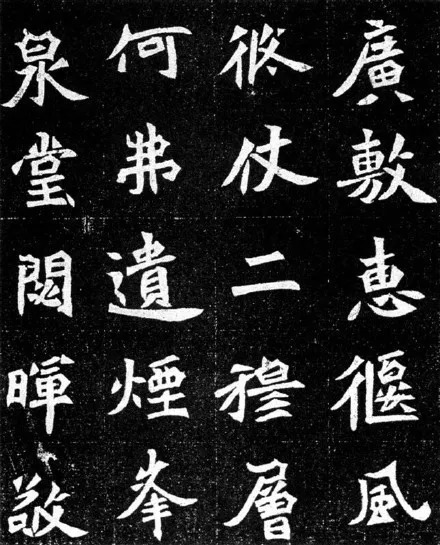 廣敷惠偃風
攸仗二穆層
何弗遺煙峯
泉堂暉敬